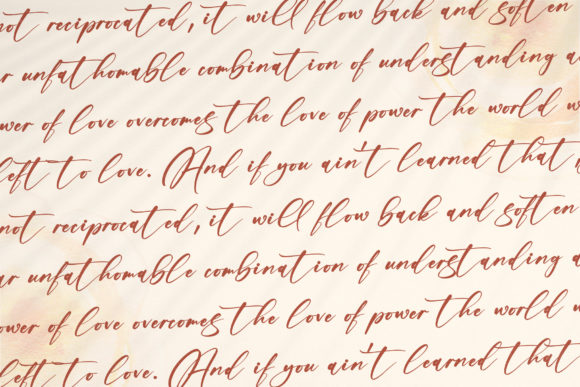 not reciprocated, it will flow back and soften
ar unfathomable combination of understanding a
ower of love overcomes the love of power the world w
left to love. And if you ain't learned that
not reciprocated, it will flow back and soften
ar unfathomable combination of understanding a
ower of love overcomes the love of power the world w
left to love. And if you ain't learned that